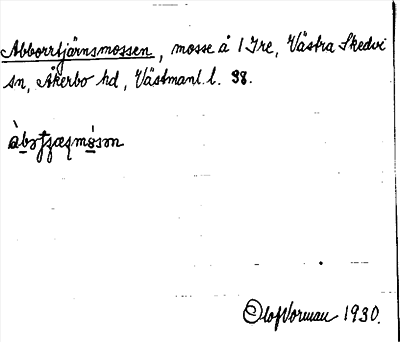 Abborrtjärnsmossen, mosse å 1 Ire, Västra Skedvi
sn, Åkerbo hd, Västmanl. l. 98.
Olof Vorman 1930.